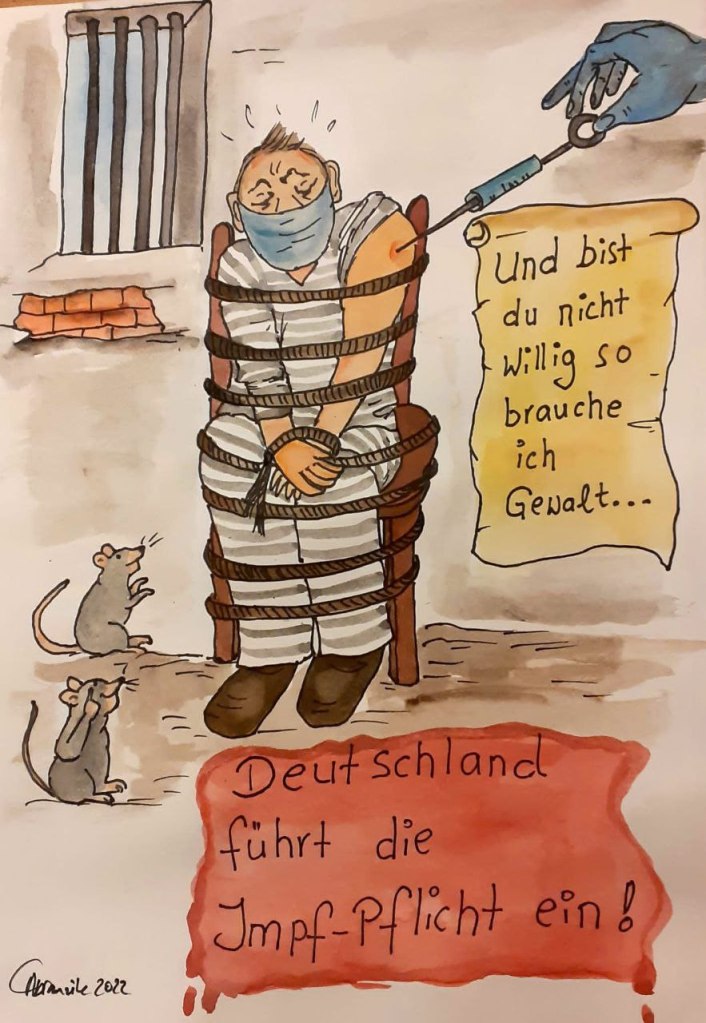 Und bist
du nicht
willig so
brauche
ich
Gewalt...
Deutschland
führt die
Impf-Pflicht ein!
2022